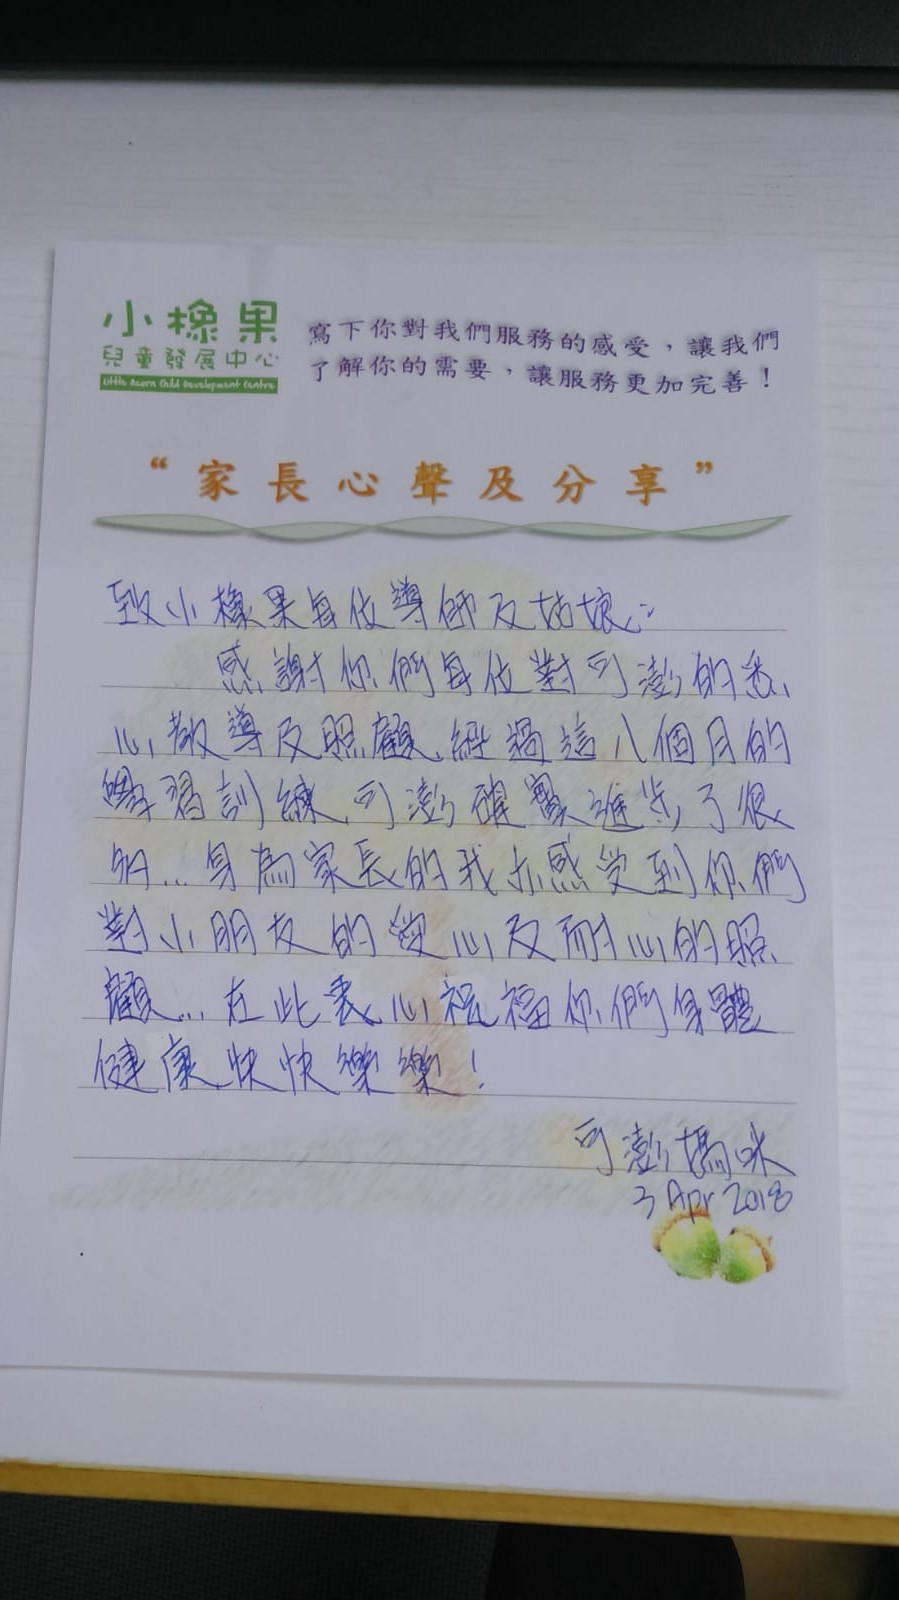 小橡果
兒童發展中心
Little Acorn Child Development Centre
寫下你對我們服務的感受，讓我們
了解你的需要，讓服務更加完善！
“家長心聲及分享”
致小橡果每位導師及姑娘：
感謝你們每位對可澎的悉
心教導及照顧，經過這八個月的
學習訓練，可澎確實進步了很
多...身為家長的我亦感受到你們
對小朋友的愛心及耐心的照
顧...在此衷心祝福你們身體
健康，快快樂樂！
可澎媽咪
3 Apr 2018